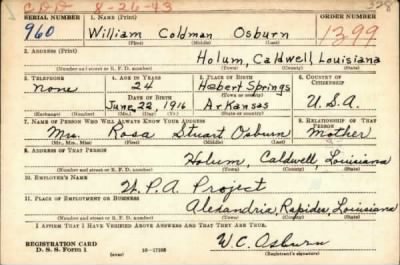 CDD 8-26-43 328
SERIAL NUMBER 1. NAME (Print) ORDER NUMBER
960 William Coldman Osburn 1399
(First) (Middle) (Last)
2. ADDRESS (Print)
Holum, Caldwell, Louisiana
(Number and street or R. F. D. number) (Town) (County) (State)
3. TELEPHONE 4. AGE IN YEARS 5. PLACE OF BIRTH 6. COUNTRY OF CITIZENSHIP
none 24 Hebert Springs
DATE OF BIRTH (Town or county)
June 22, 1916 Arkansas U.S.A.
(Exchange) (Number) (Mo.) (Day) (Yr.) (State or country)
7. NAME OF PERSON WHO WILL ALWAYS KNOW YOUR ADDRESS 8. RELATIONSHIP OF THAT PERSON
Mrs. Rosa Stuart Osburn Mother
(Mr., Mrs., Miss) (First) (Middle) (Last)
9. ADDRESS OF THAT PERSON
Holum, Caldwell, Louisiana
(Number and street or R. F. D. number) (Town) (County) (State)
10. EMPLOYER'S NAME
W.P.A. Project
11. PLACE OF EMPLOYMENT OR BUSINESS
Alexandria, Rapides, Louisiana
(Number and street or R. F. D. number) (Town) (County) (State)
I AFFIRM THAT I HAVE VERIFIED ABOVE ANSWERS AND THAT THEY ARE TRUE.
REGISTRATION CARD
D. S. S. Form 1 (over) 16-17105 W.C. Osburn
(Registrant's signature)